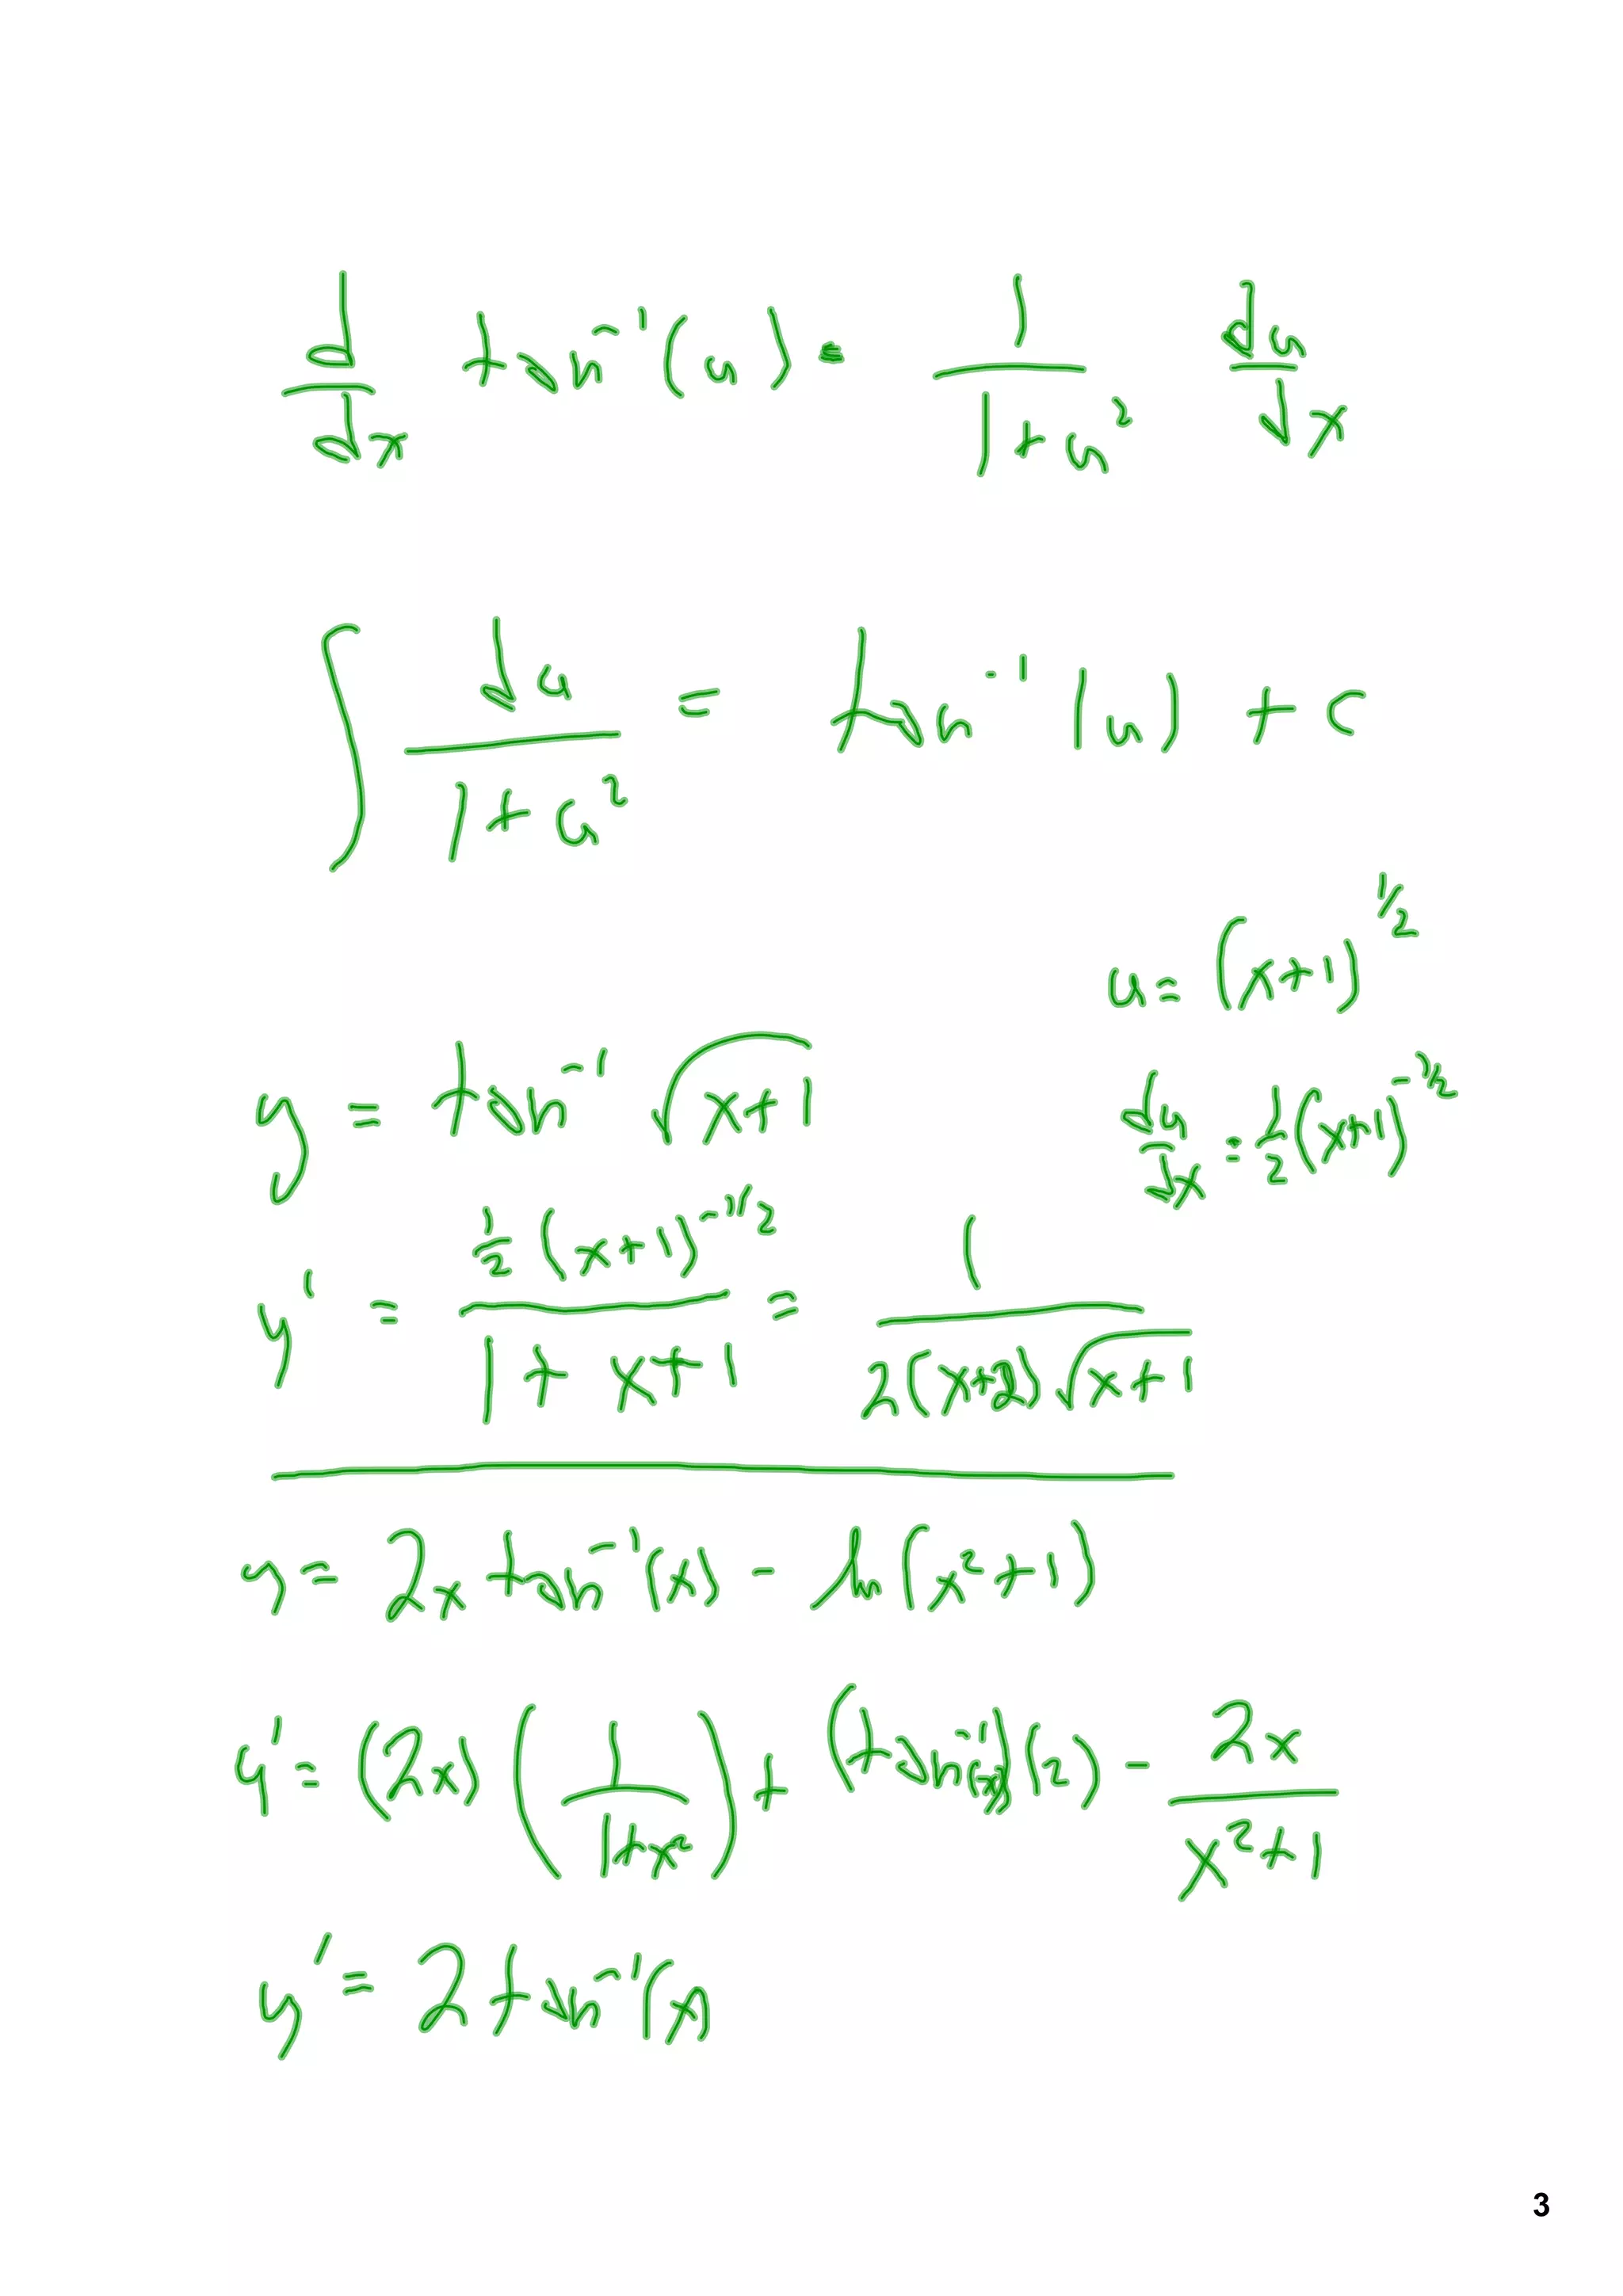 d/dx tan⁻¹(u) = 1/(1+u²) du/dx
∫ du/(1+u²) = tan⁻¹(u) + c
u = (x+1)^1/2
y = tan⁻¹ √(x+1)
du/dx = 1/2 (x+1)^-1/2
y' = (1/2 (x+1)^-1/2)/(1+x+1) = 1/(2(x+2)√(x+1))
y = 2x tan⁻¹(x) - ln(x²+1)
y' = (2x)(1/(1+x²)) + (tan⁻¹(x))(2) - 2x/(x²+1)
y' = 2 tan⁻¹(x)
3